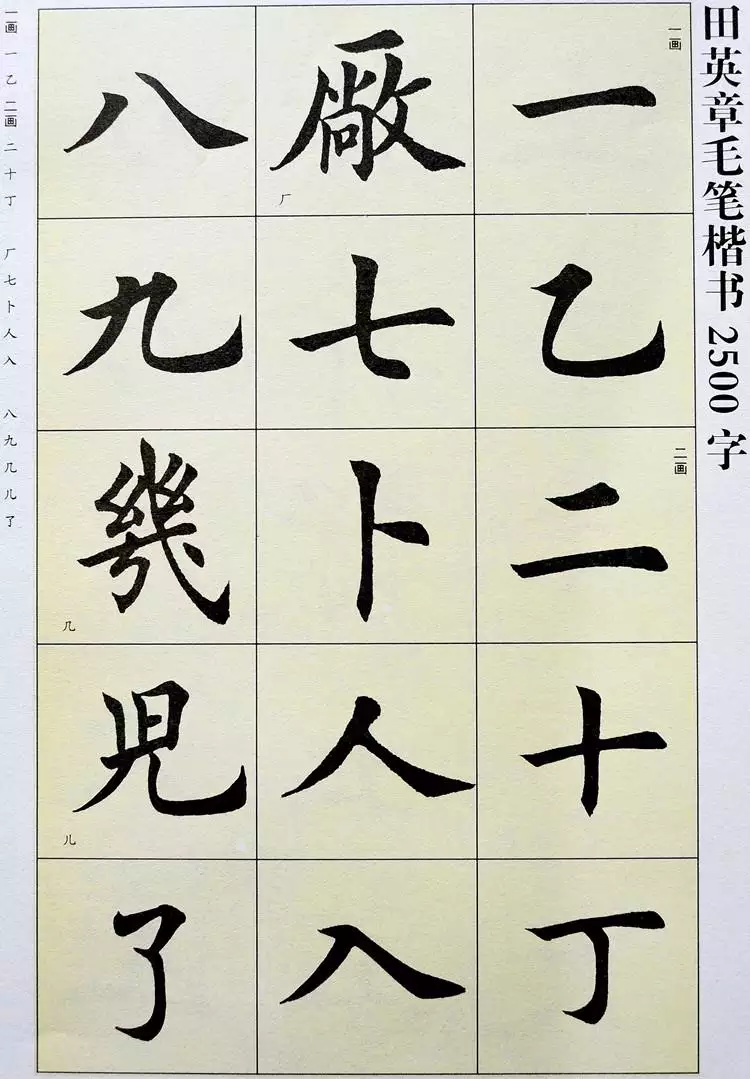 田英章毛笔楷书2500字
一画
一
乙
二画
二
十
丁
廠
厂
七
卜
人
入
八
九
幾
几
兒
儿
了
一画 一 乙 二画 二 十 丁 厂 七 卜 人 入 八 九 几 儿 了